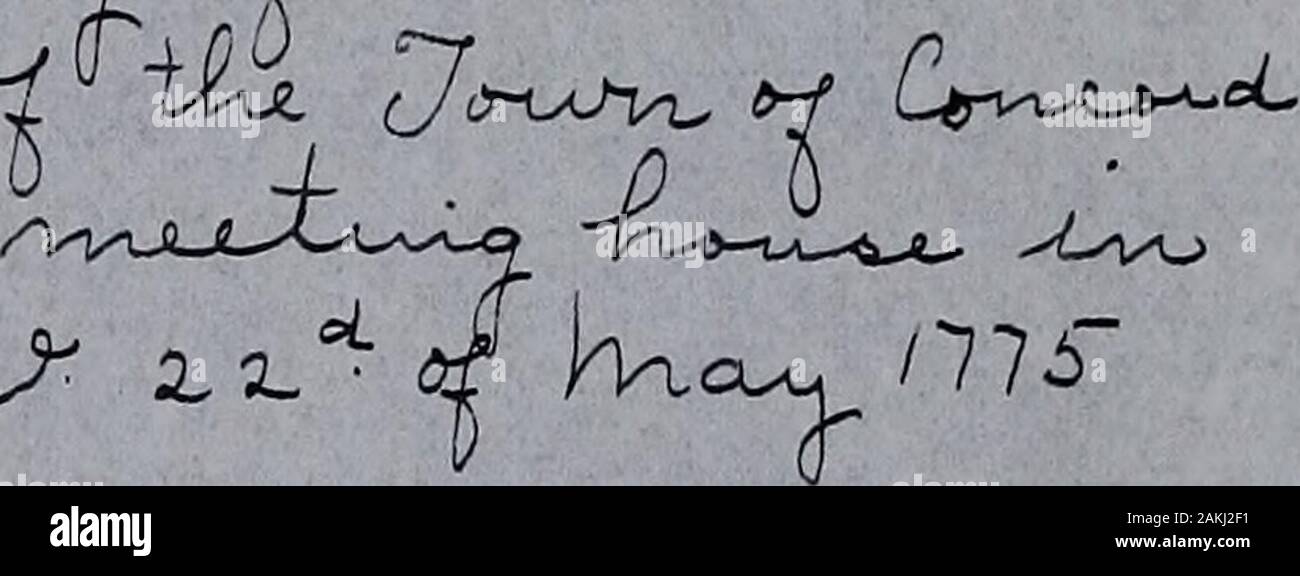 f the Town of Concord
meeting house in
22d. of May 1775
alamy
Image ID: 2AKJ2F1
www.alamy.com